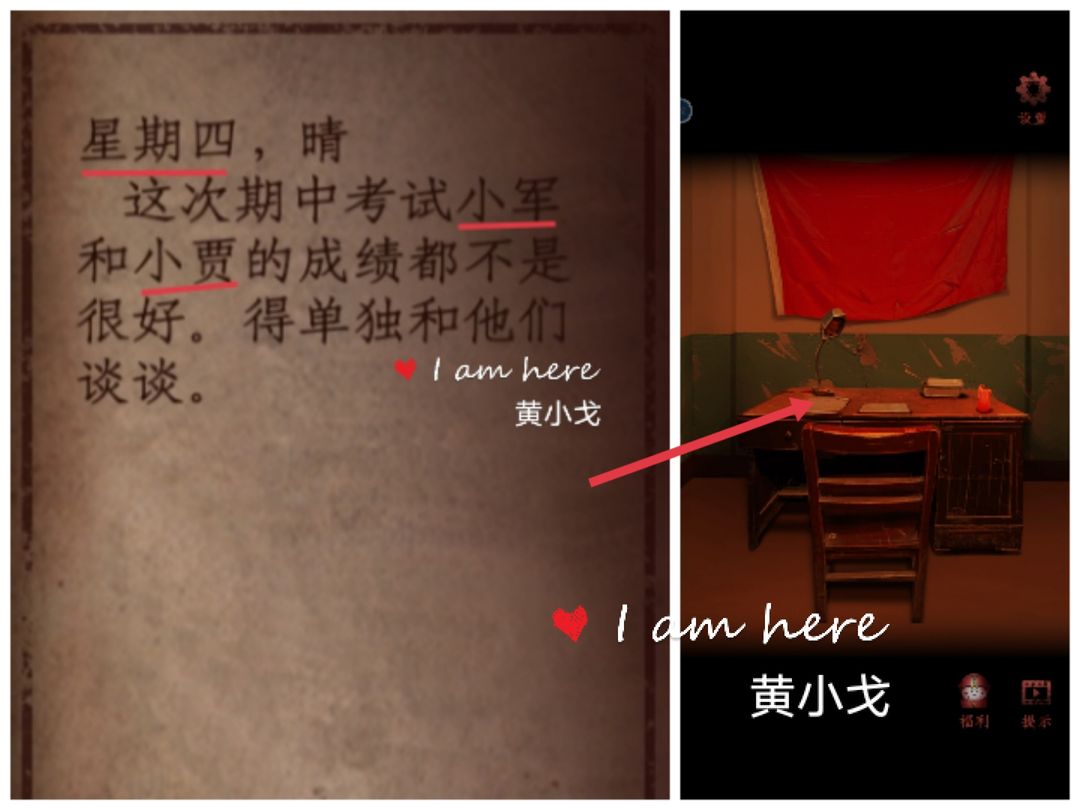 星期四，晴
这次期中考试小军
和小贾的成绩都不是
很好。得单独和他们
谈谈。
I am here
黄小戈
设置
I am here
黄小戈
福利
提示